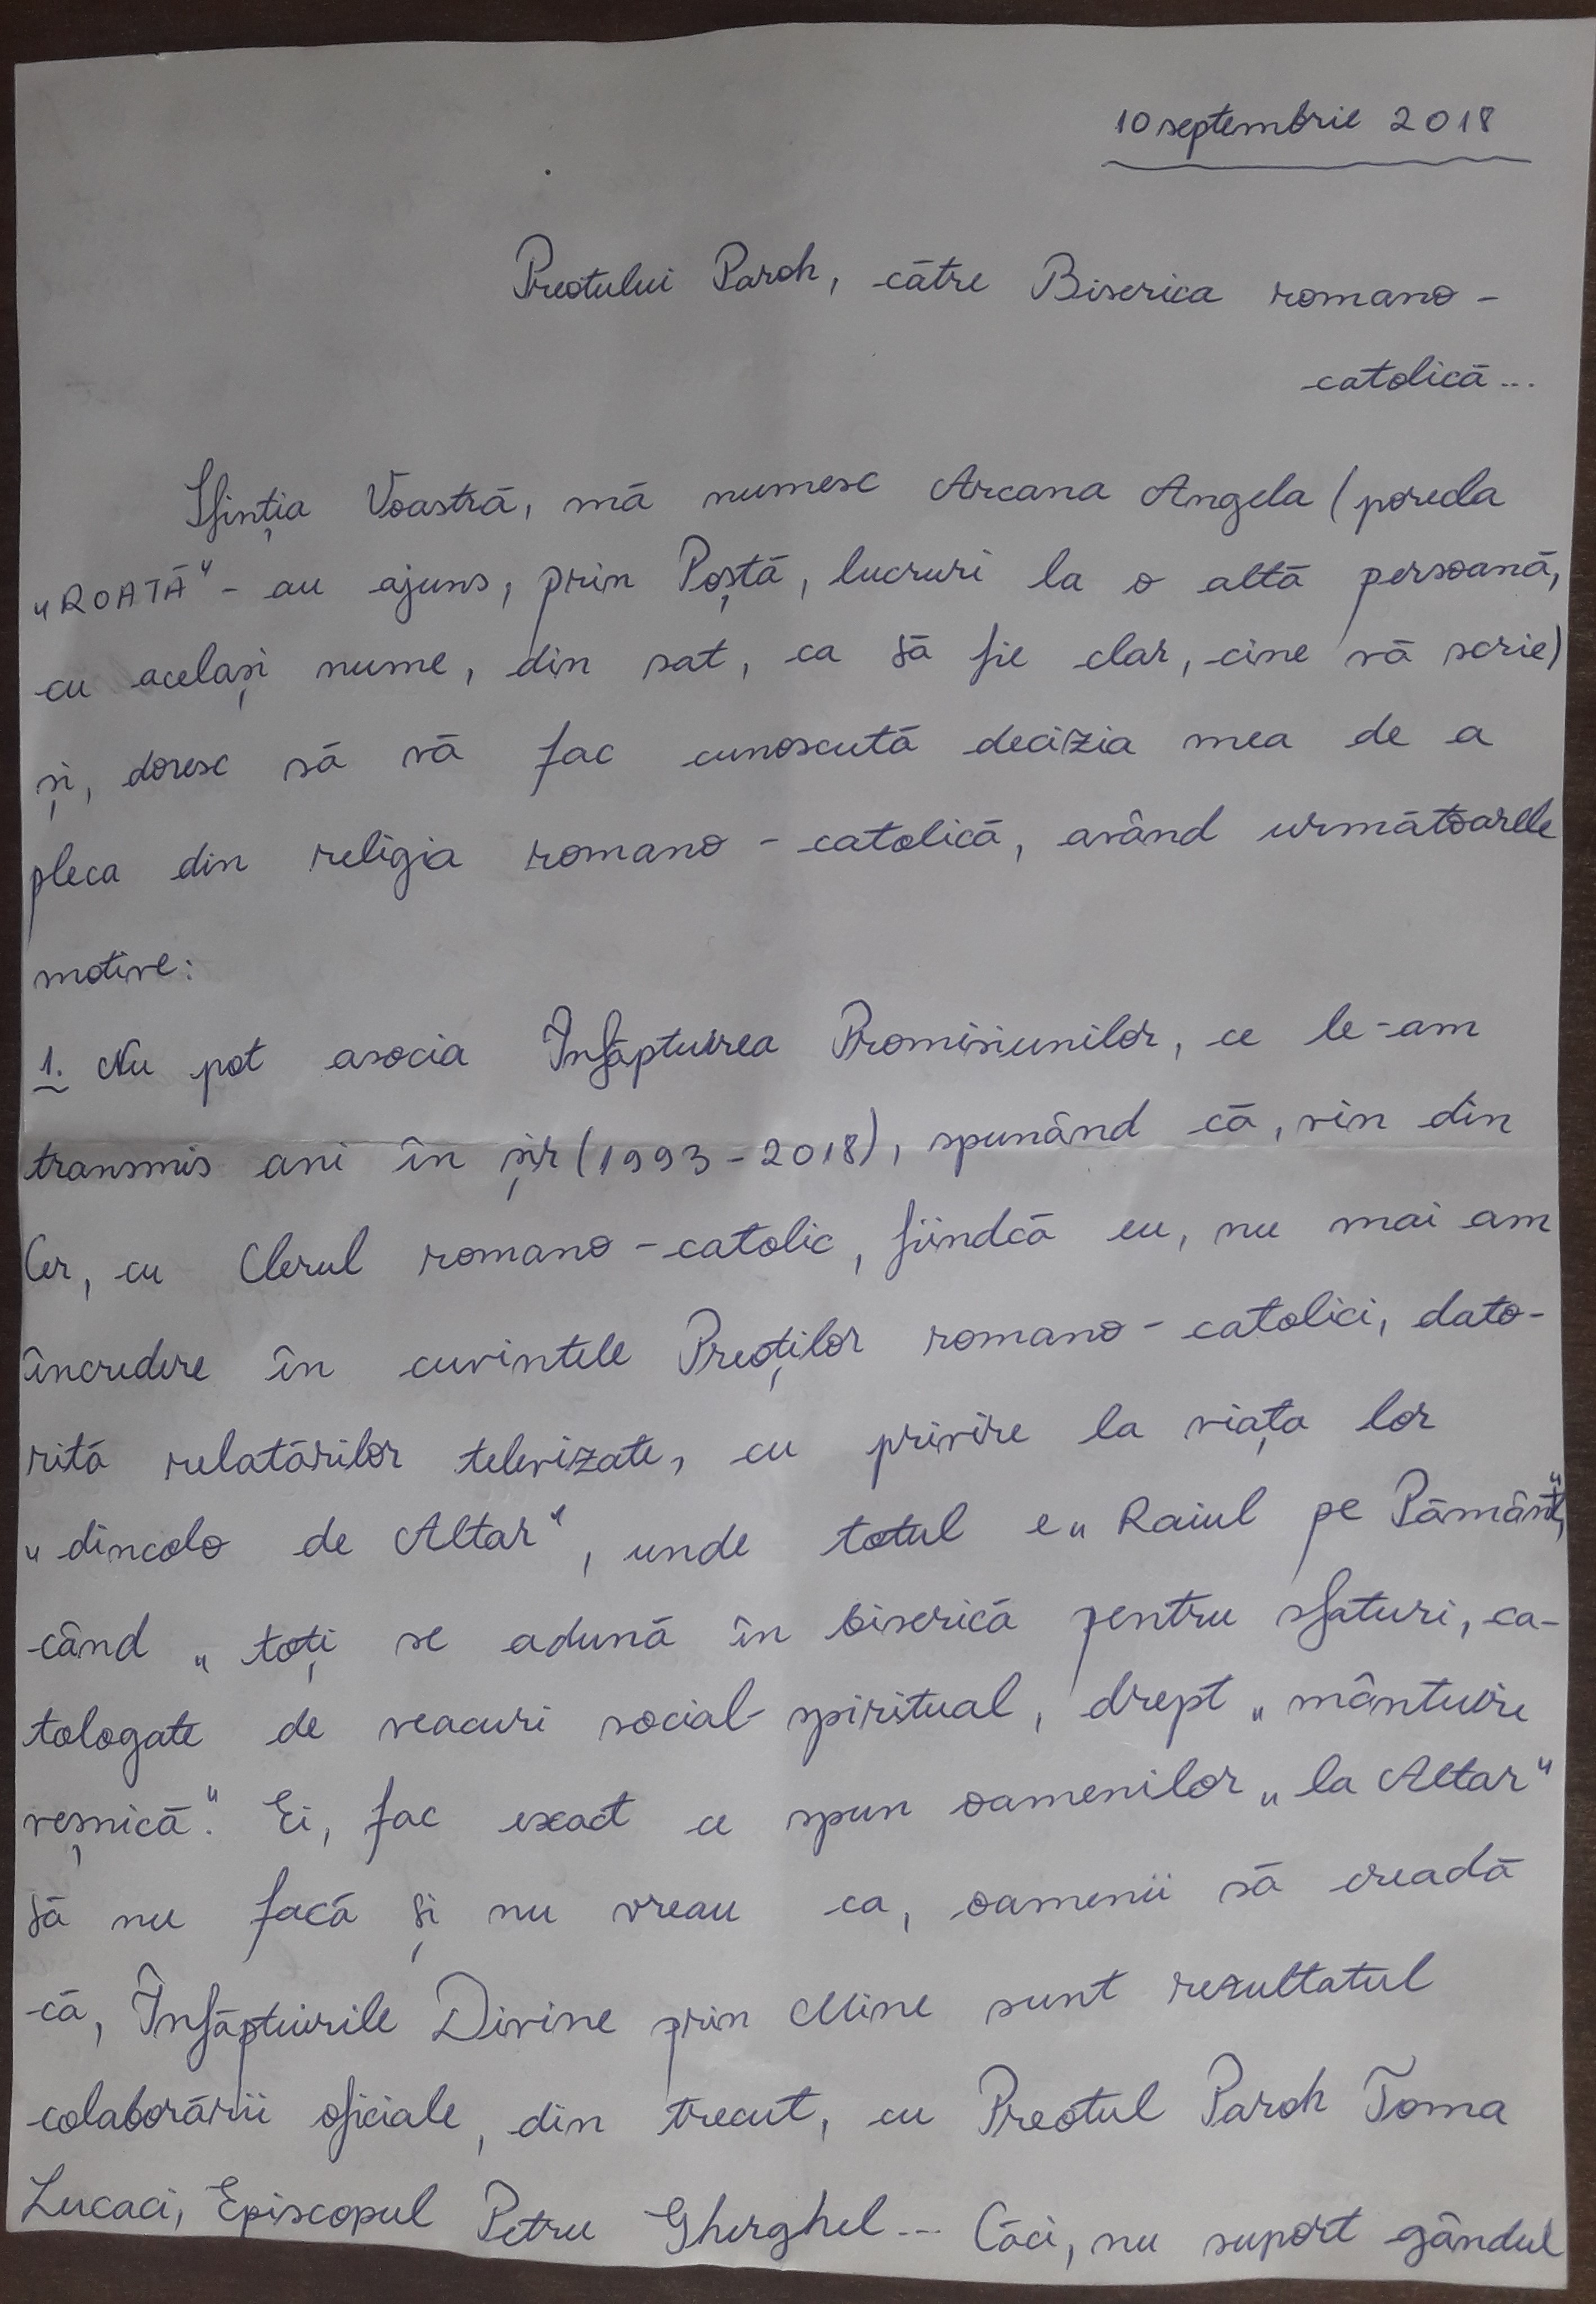 10 septembrie 2018
Preotului Paroh, către Biserica romano-
catolică...
Sfinția Voastră, mă numesc Arcana Angela (porecla
„ROATĂ" - au ajuns, prin Poștă, lucruri la o altă persoană,
cu același nume, din sat, ca să fie clar, cine vă scrie)
și, doresc să vă fac cunoscută decizia mea de a
pleca din religia romano-catolică, având următoarele
motive:
1. Nu pot asocia Înfăptuirea Promisiunilor, ce le-am
transmis ani în șir (1993-2018), spunând că, vin din
Cer, cu Clerul romano-catolic, fiindcă eu, nu mai am
încredere în cuvintele Preoților romano-catolici, dato-
rită relatărilor televizate, cu privire la viața lor
„dincolo de Altar", unde totul e „Raiul pe Pământ",
când „toți se adună în biserică pentru sfaturi, ca-
tologate de veacuri social-spiritual, drept „mântuire
veșnică". Ei, fac exact ce spun oamenilor „la Altar"
să nu facă și nu vreau ca, oamenii să creadă
că, Înfăptuirile Divine prin Mine sunt rezultatul
colaborării oficiale, din trecut, cu Preotul Paroh Toma
Lucaci, Episcopul Petru Gherghel... Căci, nu suport gândul